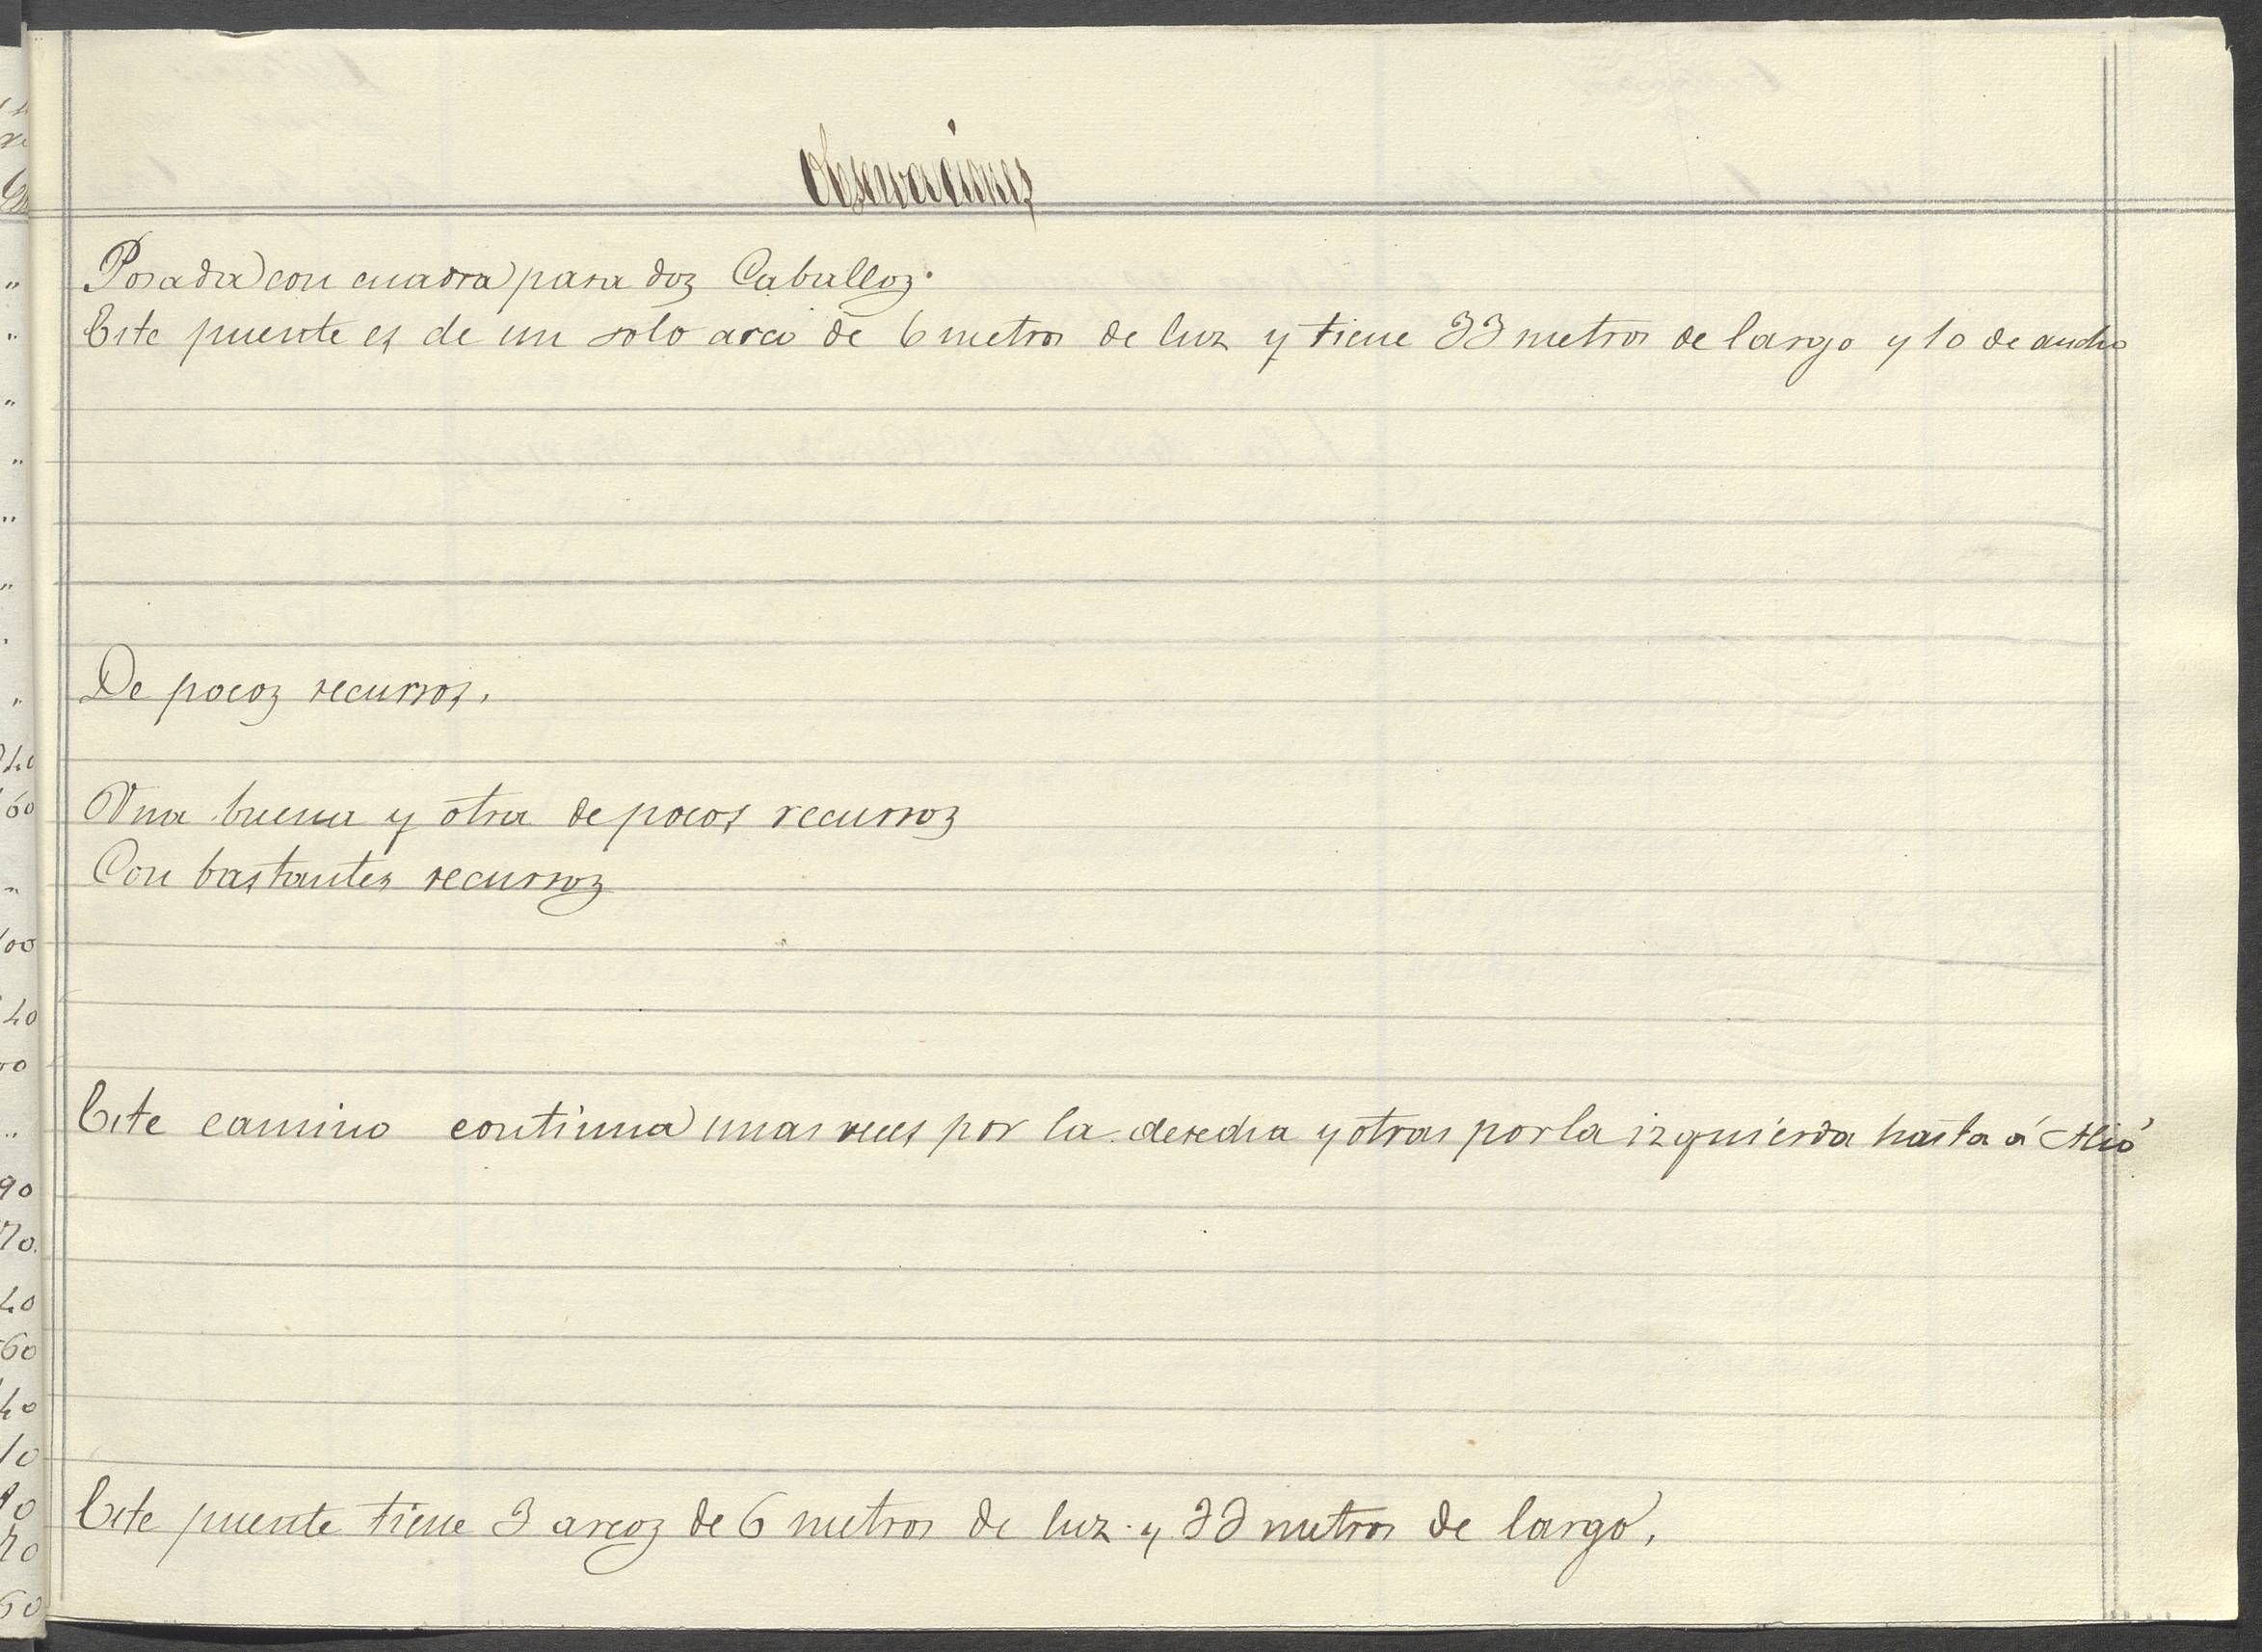 Observaciones
Posada con cuadra para doz Caballoz.
Este puente es de un solo arco de 6 metros de luz y tiene 33 metros de largo y 10 de ancho
De pocoz recursos.
Una buena y otra de pocos recursoz
Con bastantez recursoz
Este camino continua unas veces por la derecha y otras por la izquierda hasta á Alió
Este puente tiene 3 arcoz de 6 metros de luz y 33 metros de largo.